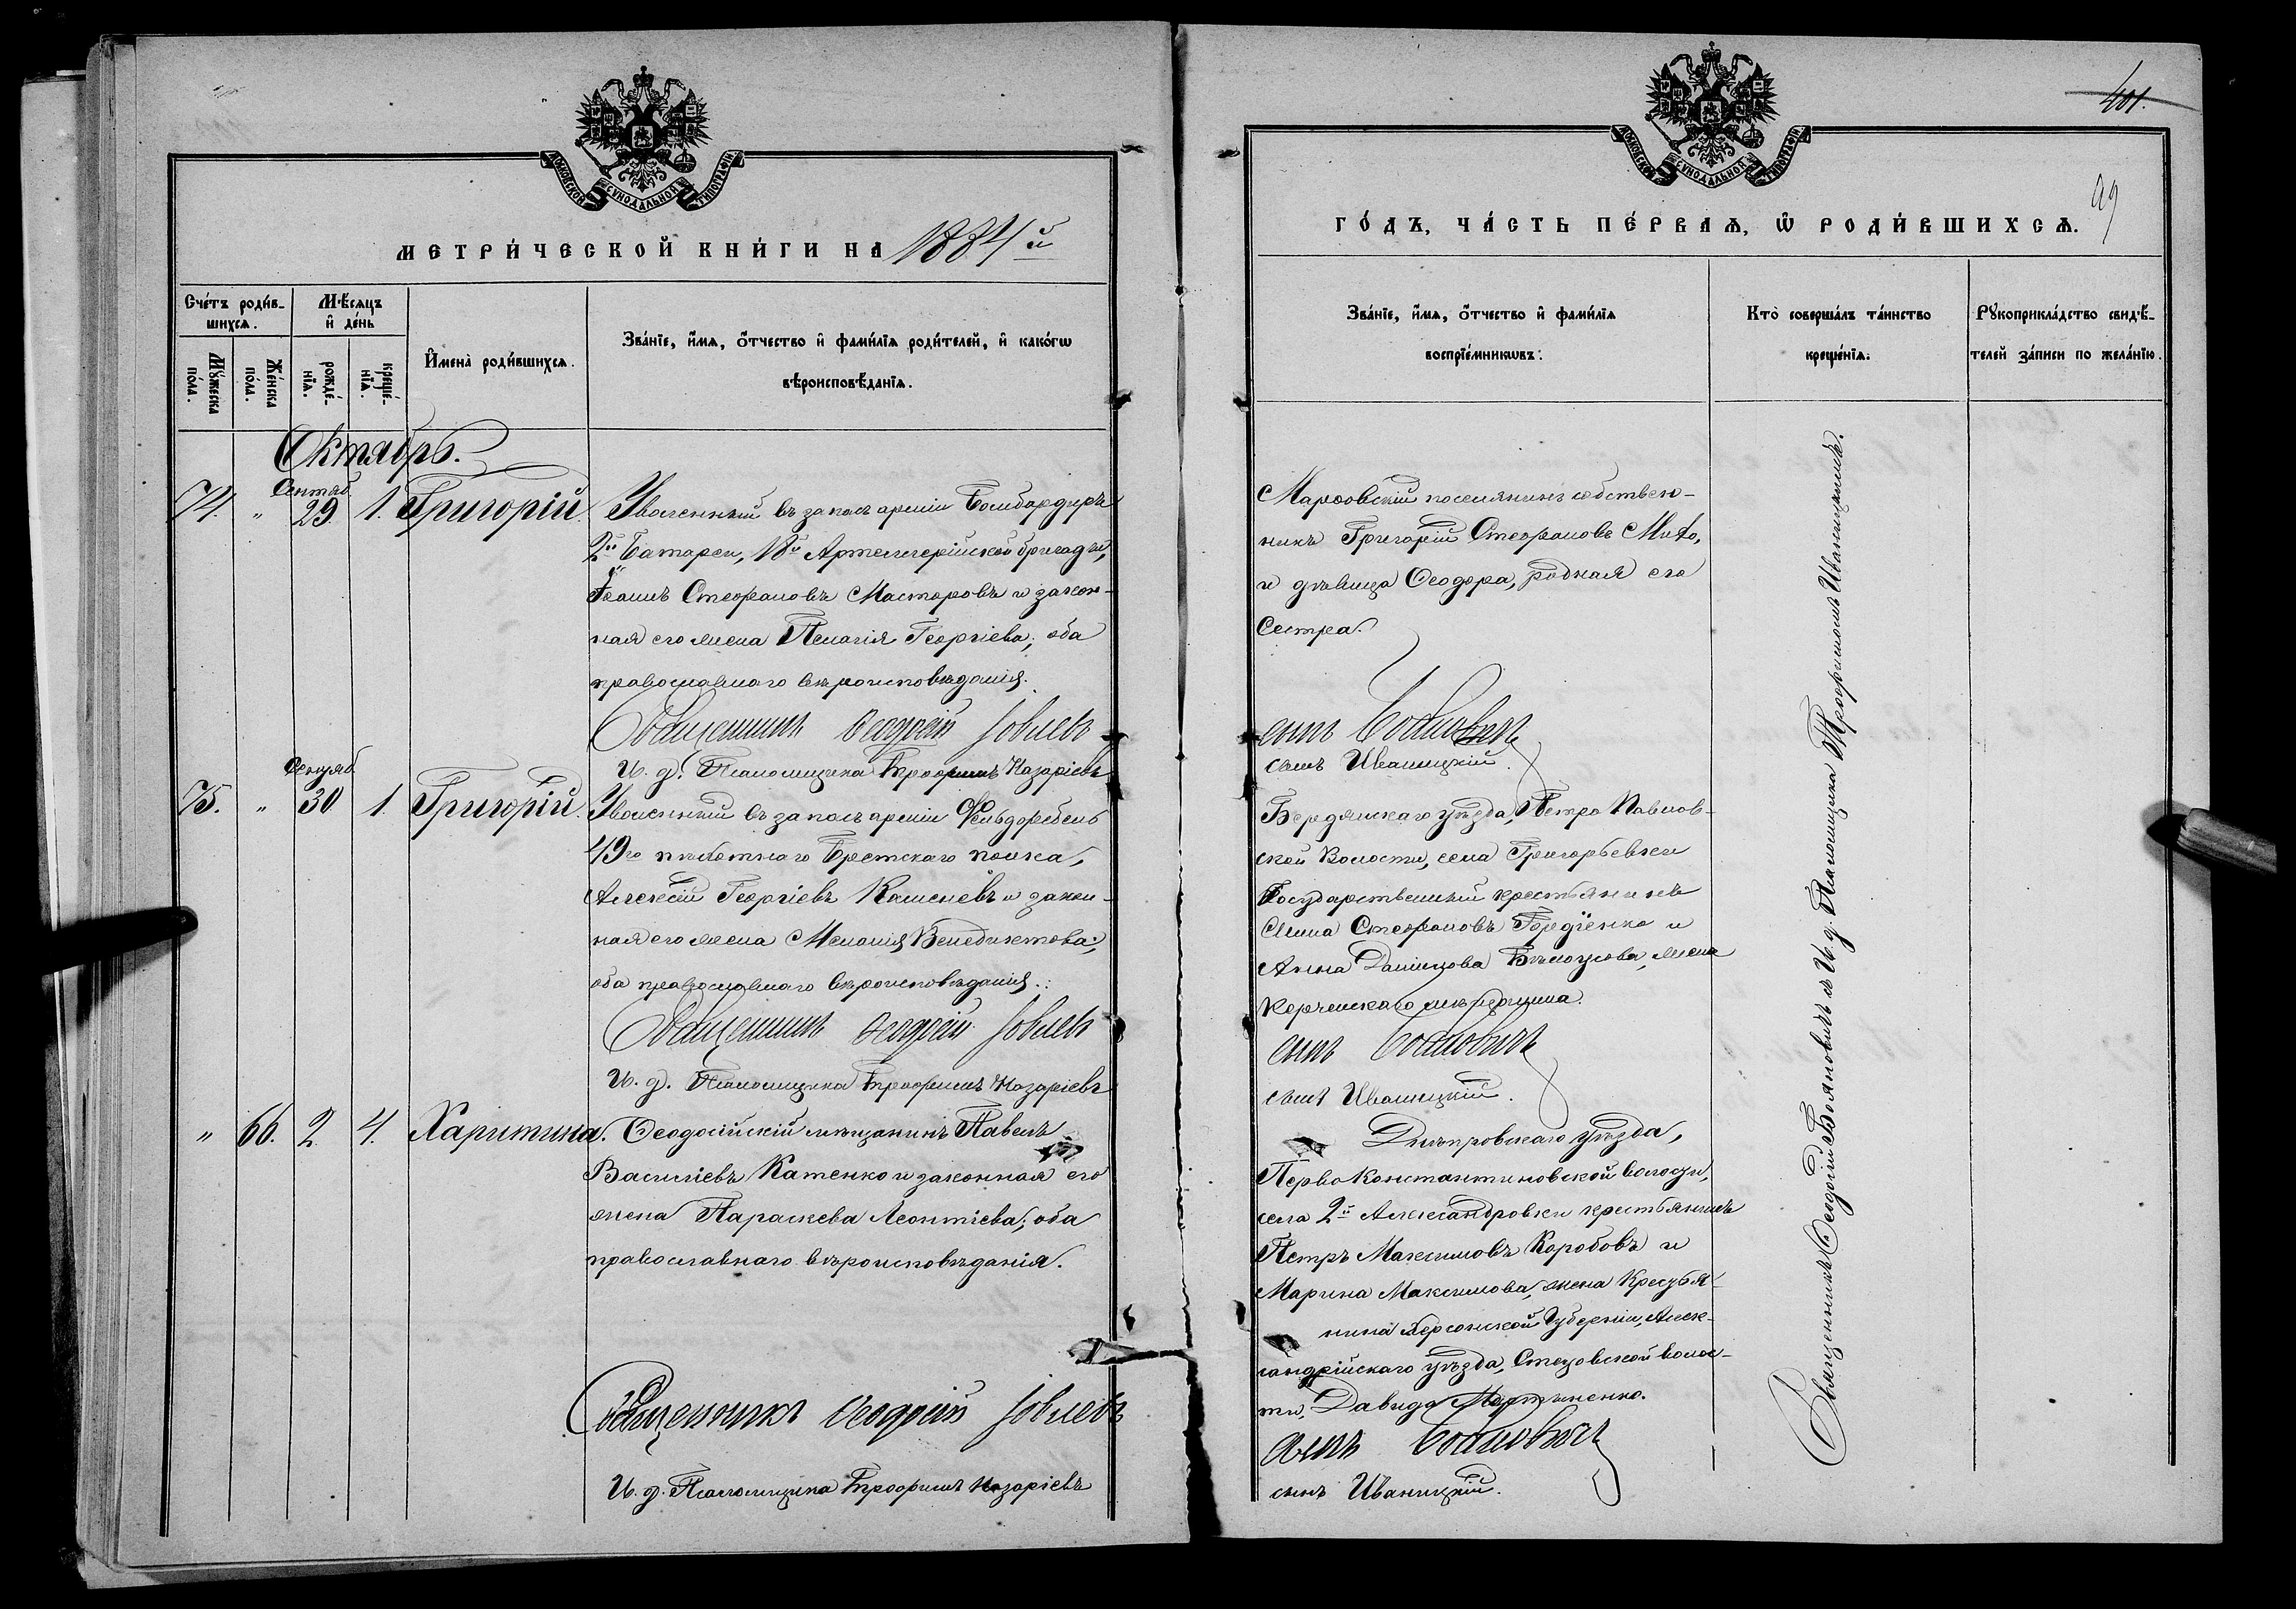 МОСКОВСКОЙ СѴНОДАЛЬНОЙ ТИПОГРАФІИ
МЕТРИ́ЧЕСКОЙ КНИ́ГИ НА 1884й
Сче́тъ роди́в-
шихсѧ.
Мѣ́сѧцъ
и҆ де́нь
Мꙋ́жеска
по́ла.
Же́нска
по́ла.
рожде́-
нїѧ.
креще́-
нїѧ.
И҆мена̀ роди́вшихсѧ.
Зва́нїе, и҆́мѧ, ѻ҆́тчество и҆ фами́лїѧ роди́телей, и҆ како́гѡ
вѣроисповѣ́данїѧ.
Октябрь.
74. " Сентяб. 29. 1. Григорій.
Уволенный въ запасъ арміи Бомбардиръ
2й Батареи, 18й Артиллерійской бригады,
Іоаннъ Стефановъ Масторовъ и закон-
ная его жена Пелагія Георгіева; оба
православнаго вѣроисповѣданія.
Священникъ Ѳеодосій
И. д. Псаломщика Трофимъ Назаріевъ
75. " Сентяб. 30 1. Григорій.
Уволенный въ запасъ арміи Фельдфебель
49го пѣхотнаго Брестскаго полка,
Алексій Георгіевъ Кашеневъ и закон-
ная его жена Меланія Венедиктова;
оба православнаго вѣроисповѣданія.
Священникъ Ѳеодосій
И. д. Псаломщика Трофимъ Назаріевъ
" 66. 2. 4. Харитина.
Ѳеодосійскій мѣщанинъ Павелъ
Василіевъ Катенко и законная его
жена Параскева Леонтіева; оба
православнаго вѣроисповѣданія.
Священникъ Ѳеодосій
И. д. Псаломщика Трофимъ Назаріевъ
401.
99
МОСКОВСКОЙ СѴНОДАЛЬНОЙ ТИПОГРАФІИ
ГО́ДЪ, ЧА́СТЬ ПЕ́РВАѦ, Ѿ РОДИ́ВШИХСѦ.
Зва́нїе, и҆́мѧ, ѻ҆́тчество и҆ фами́лїѧ
воспрїе́мникѡвъ.
Кто̀ соверша́лъ та́инство
креще́нїѧ.
Рꙋкоприкла́дство свидѣ́-
телей за́писи по жела́нїю.
Марфовскій поселянинъ собствен-
никъ Григорій Стефановъ
и дѣвица Ѳеодора, родная его
Сестра.
сынъ Бояновичъ
сынъ Иваницкій.
Бердянскаго уѣзда, Петро Павлов-
ской Волости, села Григорьевки
Государственный крестьянинъ
Стефановъ Гордіенко и
Анна Даніилова Бѣлоусова, жена
Керченскаго мѣщанина.
сынъ Бояновичъ
сынъ Иваницкій.
Днѣпровскаго уѣзда,
Перво Константиновской волости,
села 2й Александровки крестьянинъ
Петръ Максимовъ Коробовъ и
Марина Максимова, жена Крестья-
нина Херсонской Губерніи, Алек-
сандрійскаго уѣзда, Стецовской волос-
ти, Давида Мартыненко.
сынъ Бояновичъ
сынъ Иваницкій.
Священникъ Ѳеодосій Бояновичъ съ И. д. Псаломщика Трофимомъ Иваницкимъ.